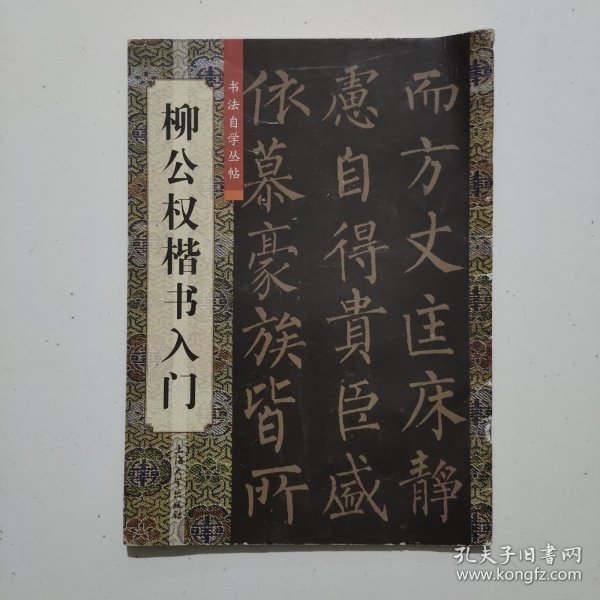 柳公权楷书入门
上海大学出版社
书法自学丛帖
而方丈匡床静
慮自得貴臣盛
依慕豪族皆所
孔夫子旧书网
www.kongfz.com